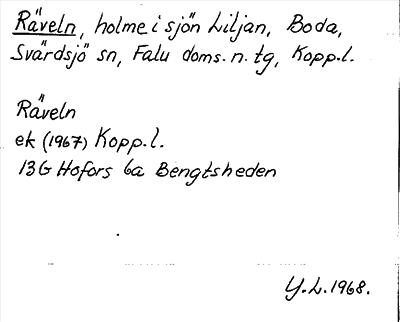 Räveln, holme i sjön Liljan, Boda,
Svärdsjö sn, Falu doms. n. tg, Kopp.l.
Räveln
ek (1967) Kopp.l.
13G Hofors 6a Bengtsheden
Y.L.1968.